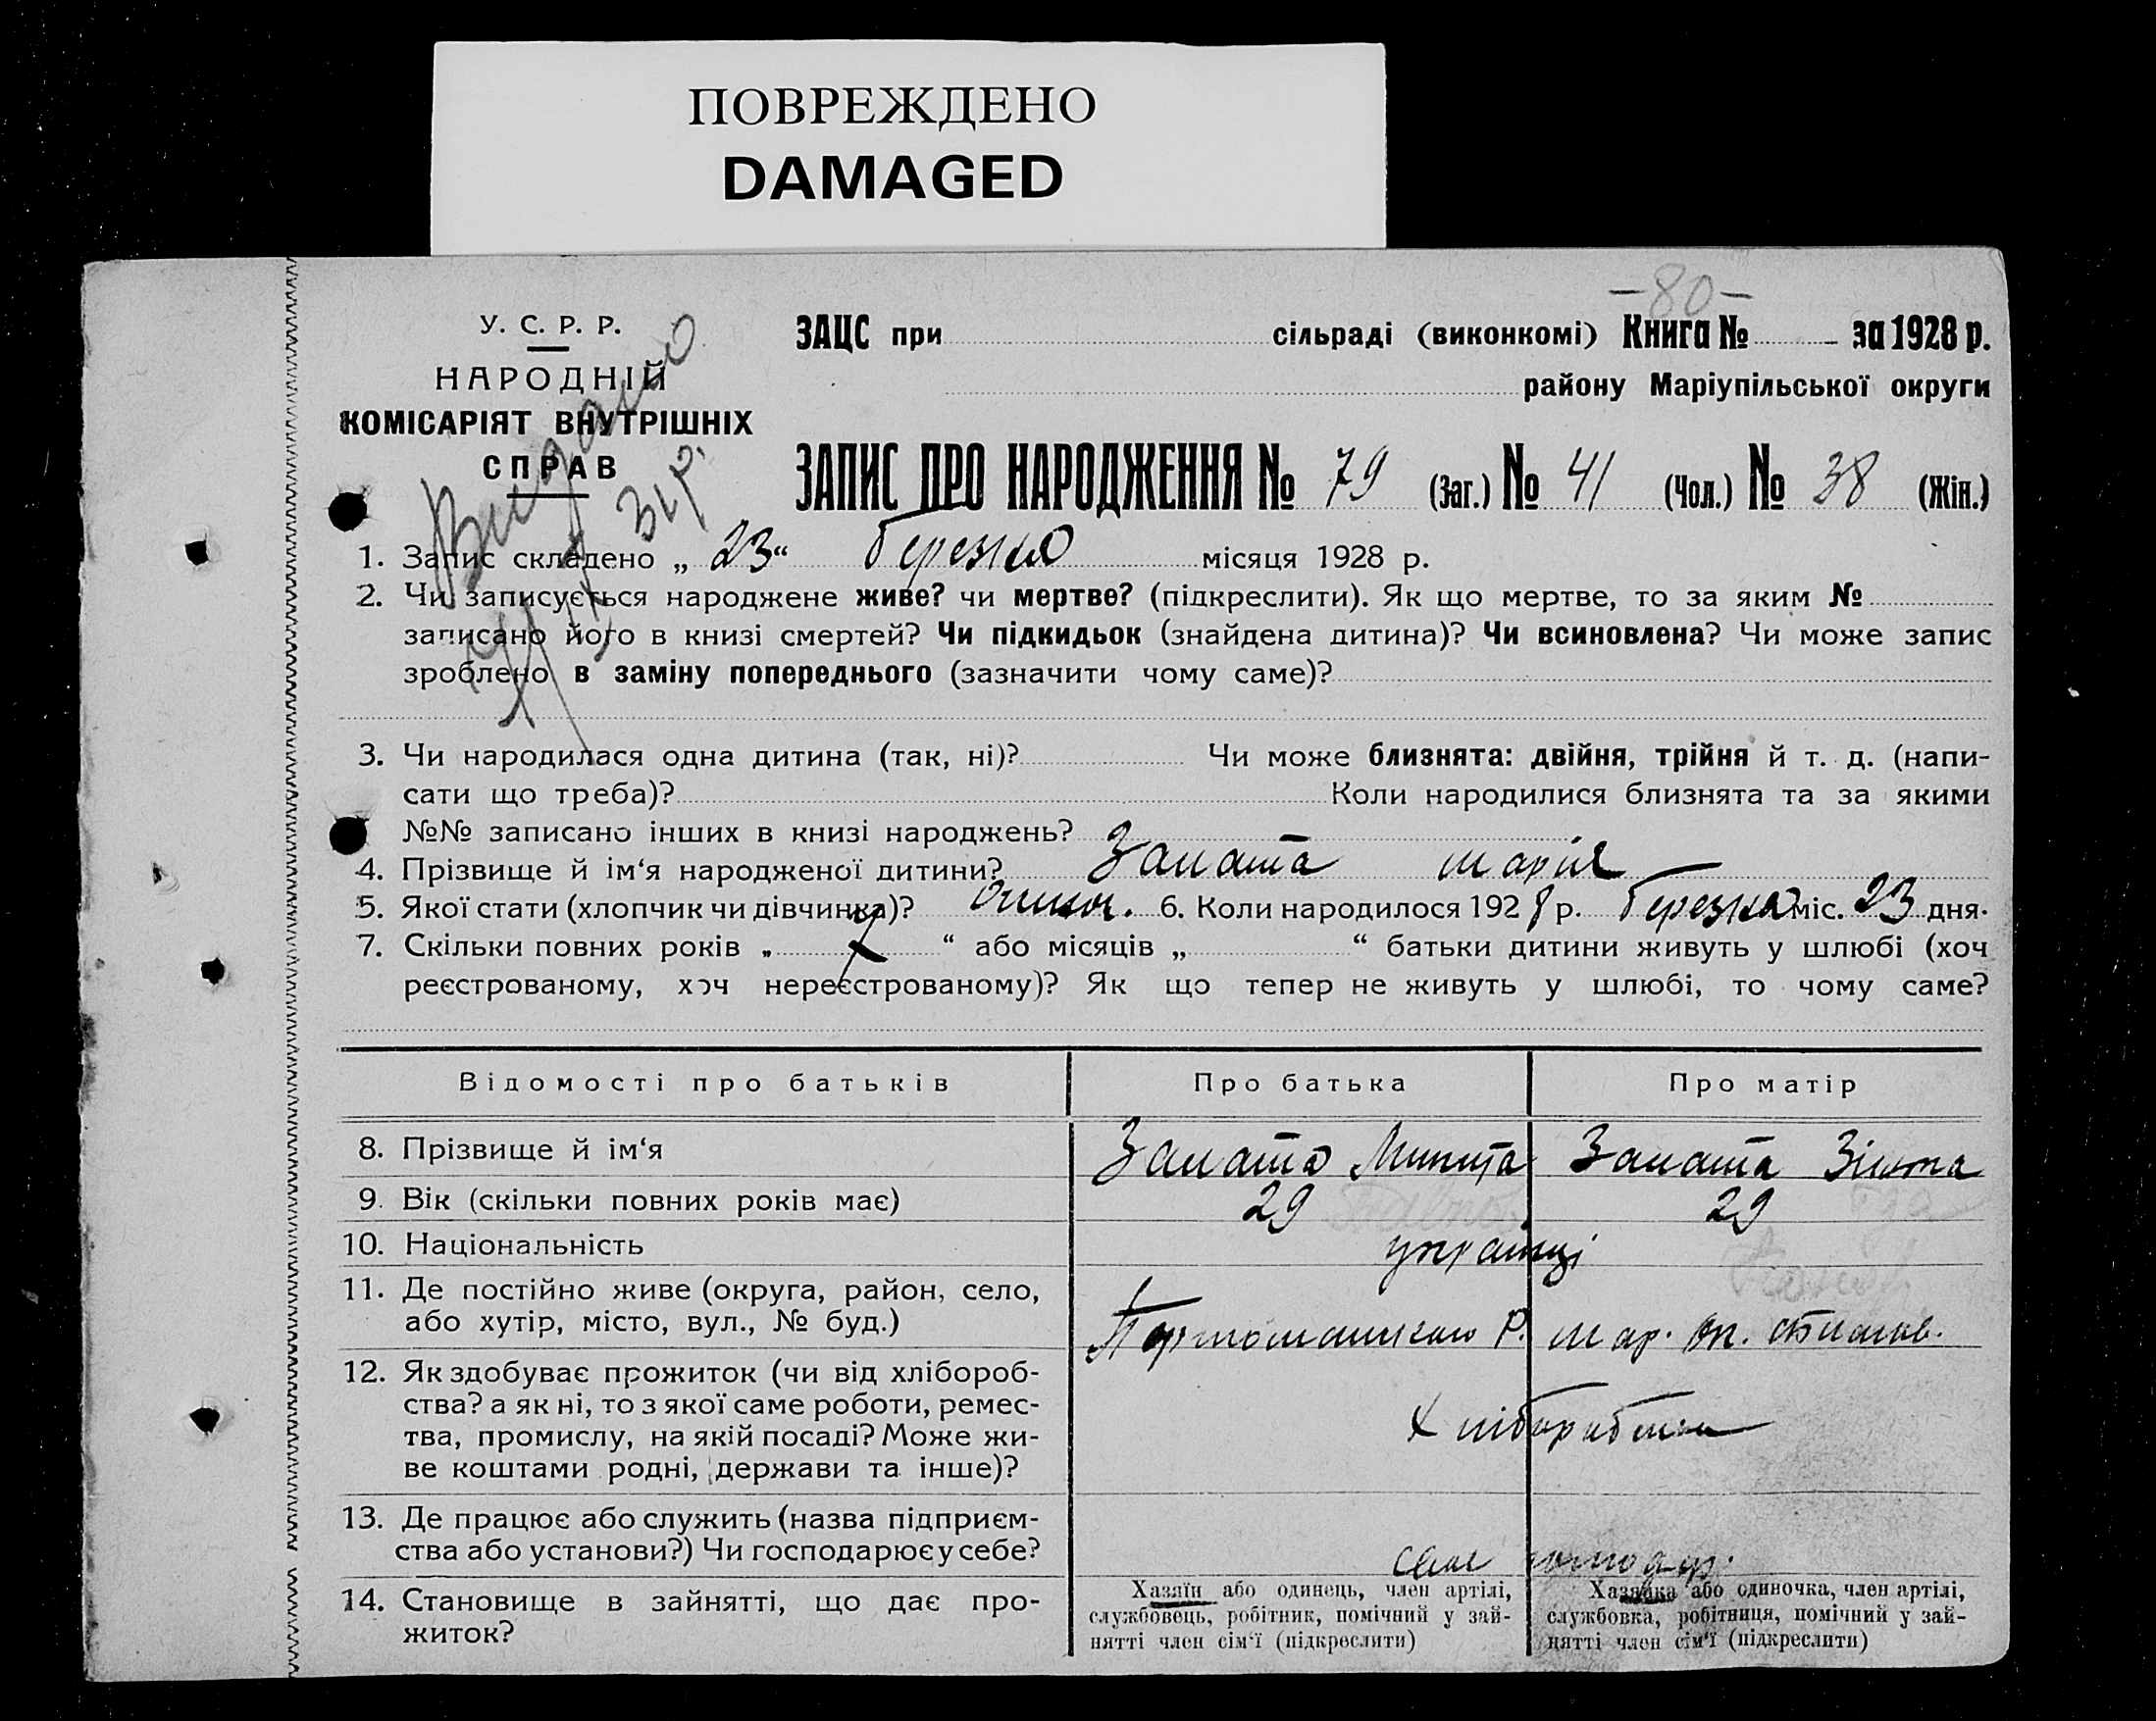 ПОВРЕЖДЕНО
DAMAGED
-80-
У. С. Р. Р.
НАРОДНІЙ
КОМІСАРІЯТ ВНУТРІШНІХ
СПРАВ
Видано
ЗАЦС при сільраді (виконкомі) Книга № за 1928 р.
району Маріупільської округи
ЗАПИС ПРО НАРОДЖЕННЯ № 79 (Заг.) № 41 (Чол.) № 38 (Жін.)
1. Запис складено „ 23 “ березня місяця 1928 р.
2. Чи записується народжене живе? чи мертве? (підкреслити). Як що мертве, то за яким №
записано його в книзі смертей? Чи підкидьок (знайдена дитина)? Чи всиновлена? Чи може запис
зроблено в заміну попереднього (зазначити чому саме)?
3. Чи народилася одна дитина (так, ні)? Чи може близнята: двійня, трійня й т. д. (напи-
сати що треба)? Коли народилися близнята та за якими
№№ записано інших в книзі народжень?
4. Прізвище й ім‘я народженої дитини? Заната марія
5. Якої стати (хлопчик чи дівчинка)? 6. Коли народилося 192 8 р. березня міс. 23 дня.
7. Скільки повних років „ “ або місяців „ “ батьки дитини живуть у шлюбі (хоч
реєстрованому, хоч нереєстрованому)? Як що тепер не живуть у шлюбі, то чому саме?
Відомості про батьків Про батька Про матір
8. Прізвище й ім‘я Заната Микита Заната
9. Вік (скільки повних років має) 29 29
10. Національність українці
11. Де постійно живе (округа, район, село,
або хутір, місто, вул., № буд.) Р. мар.
12. Як здобуває прожиток (чи від хлібороб-
ства? а як ні, то з якої саме роботи, ремес-
тва, промислу, на якій посаді? Може жи-
ве коштами родні, держави та інше)?
13. Де працює або служить (назва підприєм-
ства або установи?) Чи господарює у себе? своє господар.
14. Становище в зайнятті, що дає про-
житок?
Хазяїн або одинець, член артілі,
службовець, робітник, помічний у зай-
нятті член сім‘ї (підкреслити)
Хазяйка або одиночка, член артілі,
службовка, робітниця, помічний у зай-
нятті член сім‘ї (підкреслити)